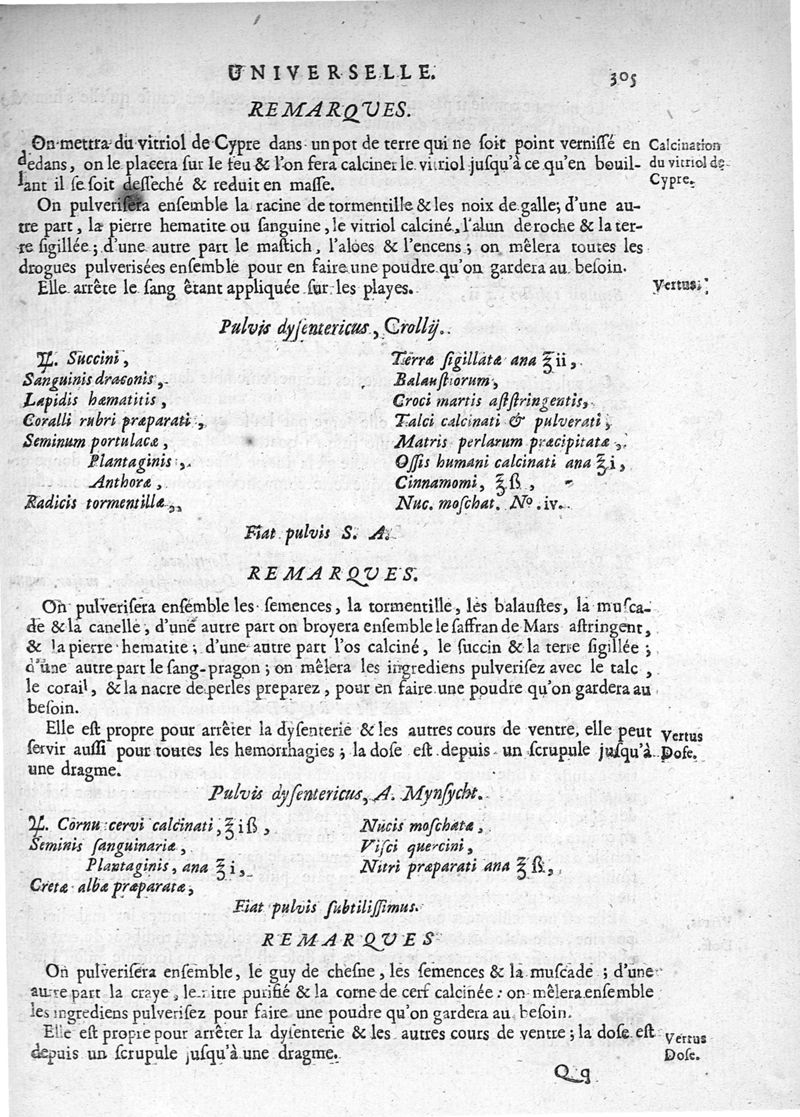 UNIVERSELLE. 305
REMARQUES.
On mettra du vitriol de Cypre dans un pot de terre qui ne soit point vernissé en
dedans, on le placera sur le feu & l'on fera calciner le vitriol jusqu'à ce qu'en bouil-
lant il se soit desseché & reduit en masse.
Calcination
du vitriol de
Cypre.
On pulverisera ensemble la racine de tormentille & les noix de galle; d'une au-
tre part, la pierre hematite ou sanguine, le vitriol calciné, l'alun de roche & la ter-
re sigillée; d'une autre part le mastich, l'aloes & l'encens; on mêlera toutes les
drogues pulverisées ensemble pour en faire une poudre qu'on gardera au besoin.
Elle arrête le sang étant appliquée sur les playes.
Vertus.
Pulvis dysentericus, Crollij.
♃. Succini,
Sanguinis draconis,
Lapidis hæmatitis,
Coralli rubri præparati,
Seminum portulacæ,
Plantaginis,
Anthoræ,
Radicis tormentillæ,
Terræ sigillatæ ana ℥ii,
Balaustiorum,
Croci martis aststringentis,
Talci calcinati & pulverati,
Matris perlarum præcipitatæ,
Ossis humani calcinati ana ℥i,
Cinnamomi, ℥ß,
Nuc. moschat. No. iv.
Fiat pulvis S. A.
REMARQUES.
On pulverisera ensemble les semences, la tormentille, les balaustes, la musca-
de & la canelle, d'une autre part on broyera ensemble le saffran de Mars astringent,
& la pierre hematite; d'une autre part l'os calciné, le succin & la terre sigillée;
d'une autre part le sang-pragon; on mêlera les ingrediens pulverisez avec le talc,
le corail, & la nacre de perles preparez, pour en faire une poudre qu'on gardera au
besoin.
Elle est propre pour arrêter la dysenterie & les autres cours de ventre, elle peut
servir aussi pour toutes les hemorrhagies; la dose est depuis un scrupule jusqu'à
une dragme.
Vertus
Dose.
Pulvis dysentericus, A. Mynsycht.
♃. Cornu cervi calcinati, ℥iß,
Seminis sanguinariæ,
Plantaginis, ana ℥i,
Cretæ albæ præparatæ,
Nucis moschatæ,
Visci quercini,
Nitri præparati ana ℥ß,
Fiat pulvis subtilissimus.
REMARQUES
On pulverisera ensemble, le guy de chesne, les semences & la muscade; d'une
autre part la craye, le nitre purifié & la corne de cerf calcinée: on mêlera ensemble
les ingrediens pulverisez pour faire une poudre qu'on gardera au besoin.
Elle est propre pour arrêter la dysenterie & les autres cours de ventre; la dose est
depuis un scrupule jusqu'à une dragme.
Vertus
Dose.
Qq